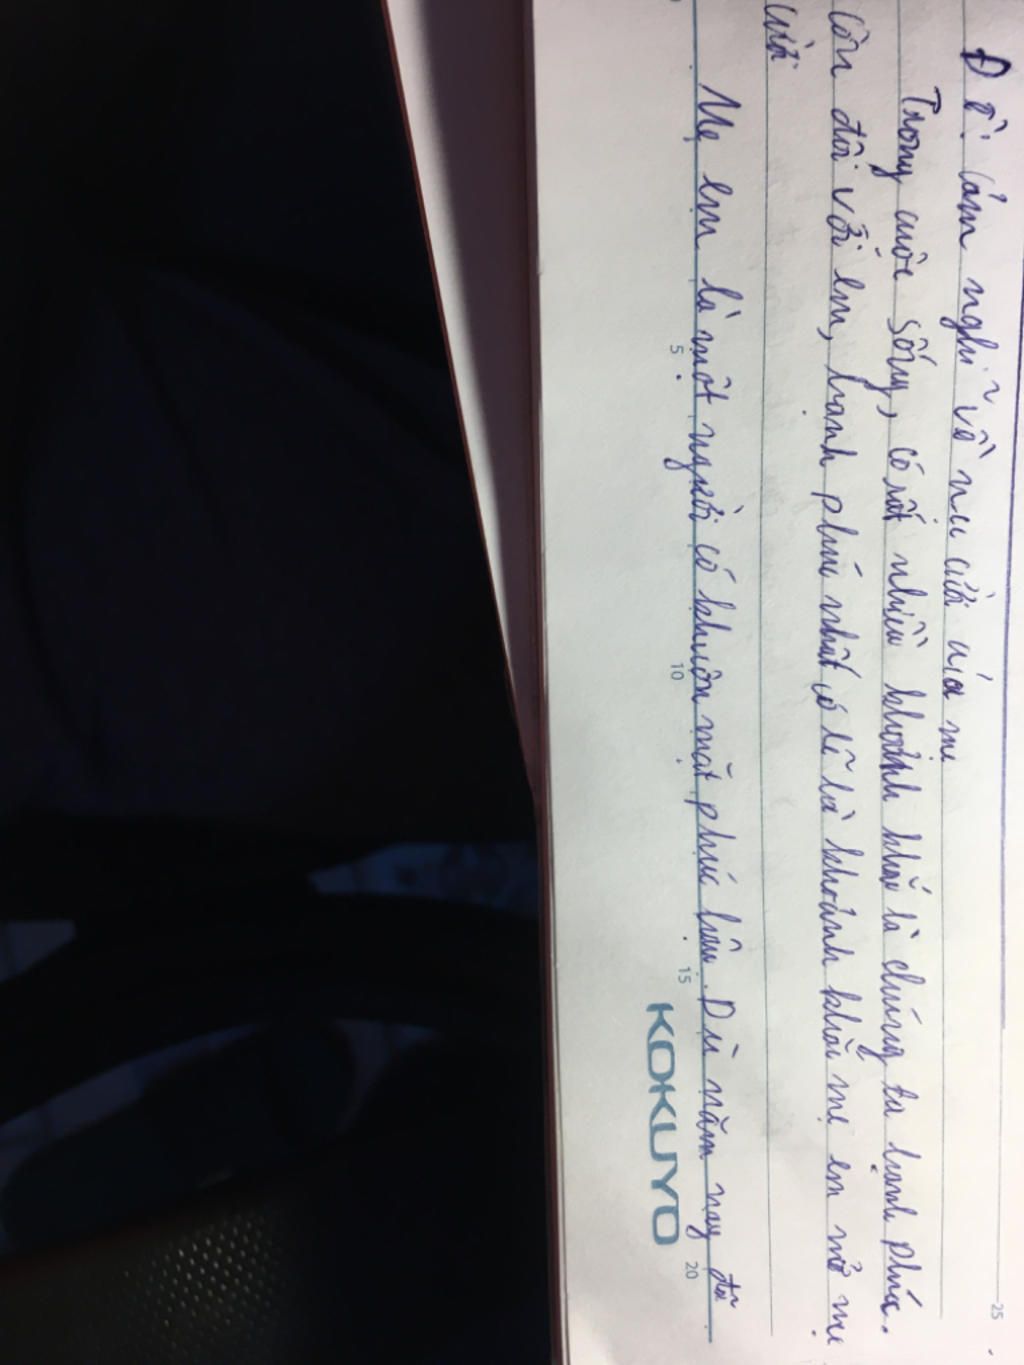 Đề: Cảm nghĩ về nụ cười của mẹ
Trong cuộc sống, có rất nhiều khoảnh khắc là chúng ta hạnh phúc.
Còn đối với em, hạnh phúc nhất có lẽ là khoảnh khắc mẹ em nở nụ
cười
Mẹ em là một người có khuôn mặt phúc hậu. Dù năm nay đã
5 10 15 20 25
KOKUYO